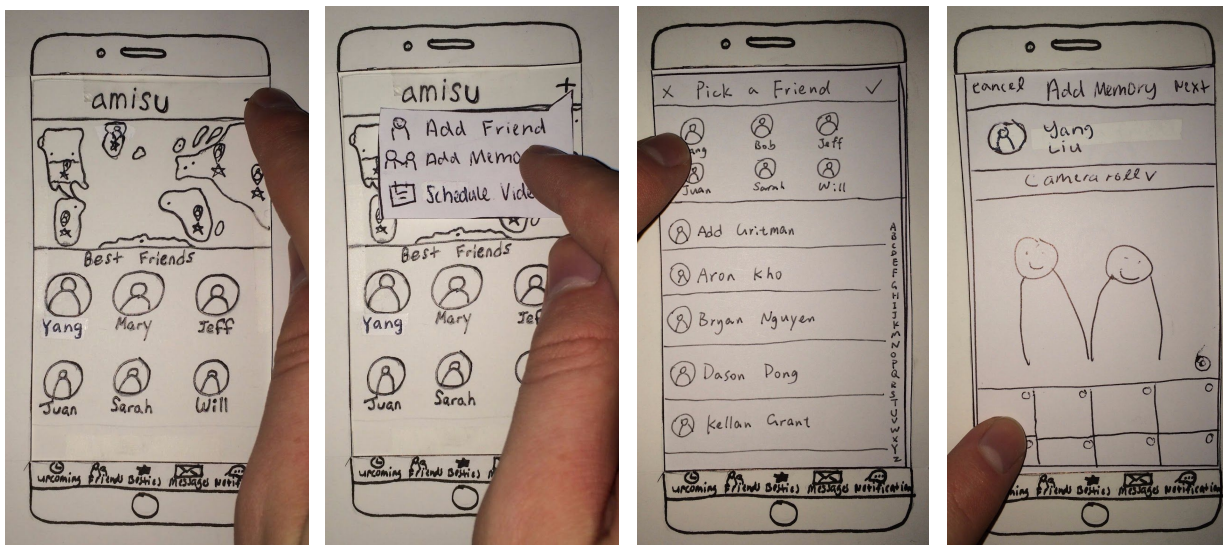 amisu
Best Friends
Yang Mary Jeff
Juan Sarah Will
upcoming Friends Besties Messages
amisu +
Add Friend
Add Memo
Schedule Vide
Best Friends
Yang Mary Jef
Juan Sarah
upcoming Friends Besties
x Pick a Friend ✓
ang Bob Jeff
Juan Sarah Will
Add Gritman
Aron Kho
Bryan Nguyen
Dason Dong
Kellan Grant
A
B
C
D
E
F
G
H
I
J
K
M
N
O
P
Q
R
S
T
U
V
W
X
Y
Z
upcoming Friends Besties Messages Notification
cancel Add Memory Next
Yang
Liu
Camera roll v
ming Friends Besties Messages Notification